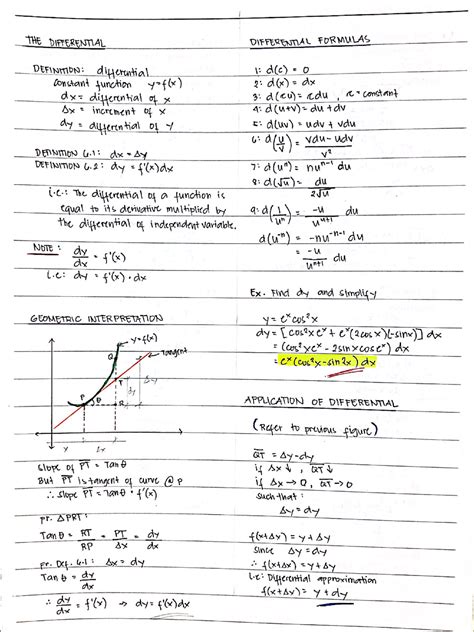 THE DIFFERENTIAL
DEFINITION: differential
constant function y=f(x)
dx = differential of x
Δx = increment of x
dy = differential of y
DEFINITION 6.1: dx = Δy
DEFINITION 6.2: dy = f'(x)dx
i.e.: The differential of a function is
equal to its derivative multiplied by
the differential of independent variable.
NOTE: dy/dx = f'(x)
i.e: dy = f'(x) · dx
GEOMETRIC INTERPRETATION
y=f(x)
Tangent
Q
T
P
θ
R
Slope of PT = Tan θ
But PT is tangent of curve @ P
∴ slope PT = Tan θ · f'(x)
pr. ΔPRT:
Tan θ = RT/RP = PT/Δx = dy/Δx
pr. Def. 6.1: Δx = dy
Tan θ = dy/dx
∴ dy/dx = f'(x) → dy = f'(x)dx
DIFFERENTIAL FORMULAS
1: d(c) = 0
2: d(x) = dx
3: d(cu) = cdu, c = constant
4: d(u+v) = du + dv
5: d(uv) = udv + vdu
6: d(u/v) = vdu - udv / v²
7: d(uⁿ) = nuⁿ⁻¹ du
8: d(√u) = du / 2√u
9: d(1/uⁿ) = -u/uⁿ⁺¹ du
d(u⁻ⁿ) = -nu⁻ⁿ⁻¹ du
= -u/uⁿ⁺¹ du
Ex. Find dy and simplify
y = eˣcos²x
dy = [cos²xeˣ + eˣ(2cosx)(-sinx)] dx
= (cos²xeˣ - 2sinxcosxeˣ) dx
= eˣ(cos²x-sin2x) dx
APPLICATION OF DIFFERENTIAL
(Refer to previous figure)
QT = Δy-dy
if Δx ↓, QT ↓
if Δx → 0, QT → 0
such that:
Δy = dy
f(x+Δx) = y + Δy
since Δy = dy
∴ f(x+Δx) = y + Δy
i.e: Differential approximation
f(x+Δx) = y + dy